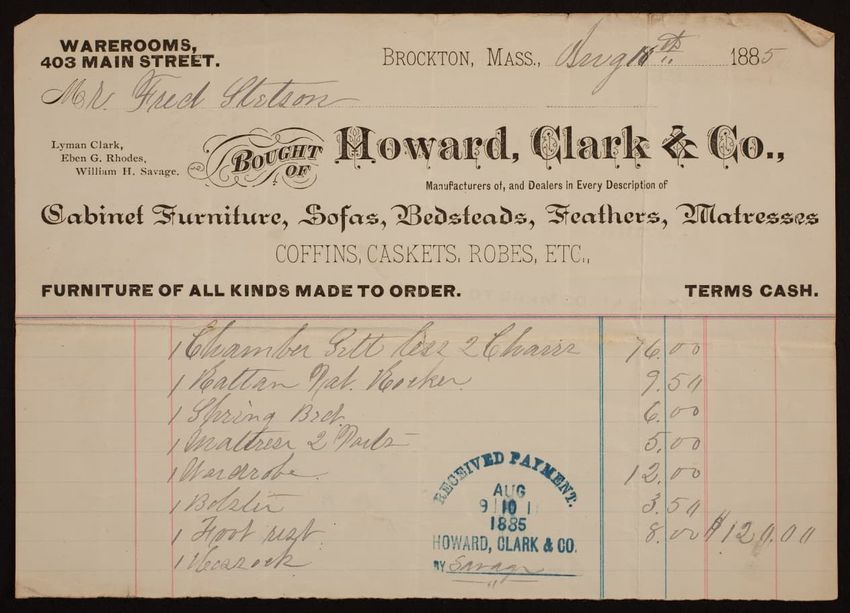 WAREROOMS,
403 MAIN STREET.
BROCKTON, MASS., Aug 1885
Mr. Fred Stetson
Lyman Clark,
Eben G. Rhodes,
William H. Savage.
BOUGHT OF
Howard, Clark & Co.,
Manufacturers of, and Dealers in Every Description of
Cabinet Furniture, Sofas, Bedsteads, Feathers, Matresses
COFFINS, CASKETS, ROBES, ETC.,
FURNITURE OF ALL KINDS MADE TO ORDER. TERMS CASH.
1 Chamber Sett less 2 Chairs 76.00
1 Rattan Nat. Rocker 9.50
1 Spring Bed 6.00
1 Mattress 2 Parts 5.00
1 Wardrobe 12.00
1 Bolster 3.50
1 Foot rest 8.00 $120.00
1 Hassock
RECEIVED PAYMENT.
AUG
9 10 1
1885
HOWARD, CLARK & CO.
BY Savage